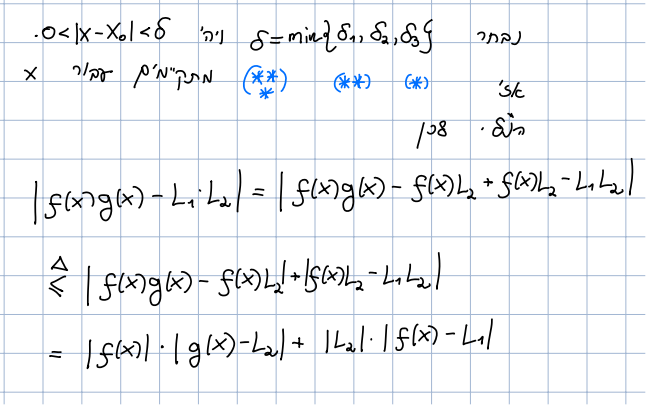 נבחר δ = min{δ₁, δ₂, δ₃} ויהי 0<|x-x₀|<δ.
אזי (*) (**) (***) מתקיימים עבור x
הנ"ל. לכן
|f(x)g(x) - L₁·L₂| = |f(x)g(x) - f(x)L₂ + f(x)L₂ - L₁L₂|
≤^Δ |f(x)g(x) - f(x)L₂| + |f(x)L₂ - L₁L₂|
= |f(x)|·|g(x)-L₂| + |L₂|·|f(x)-L₁|